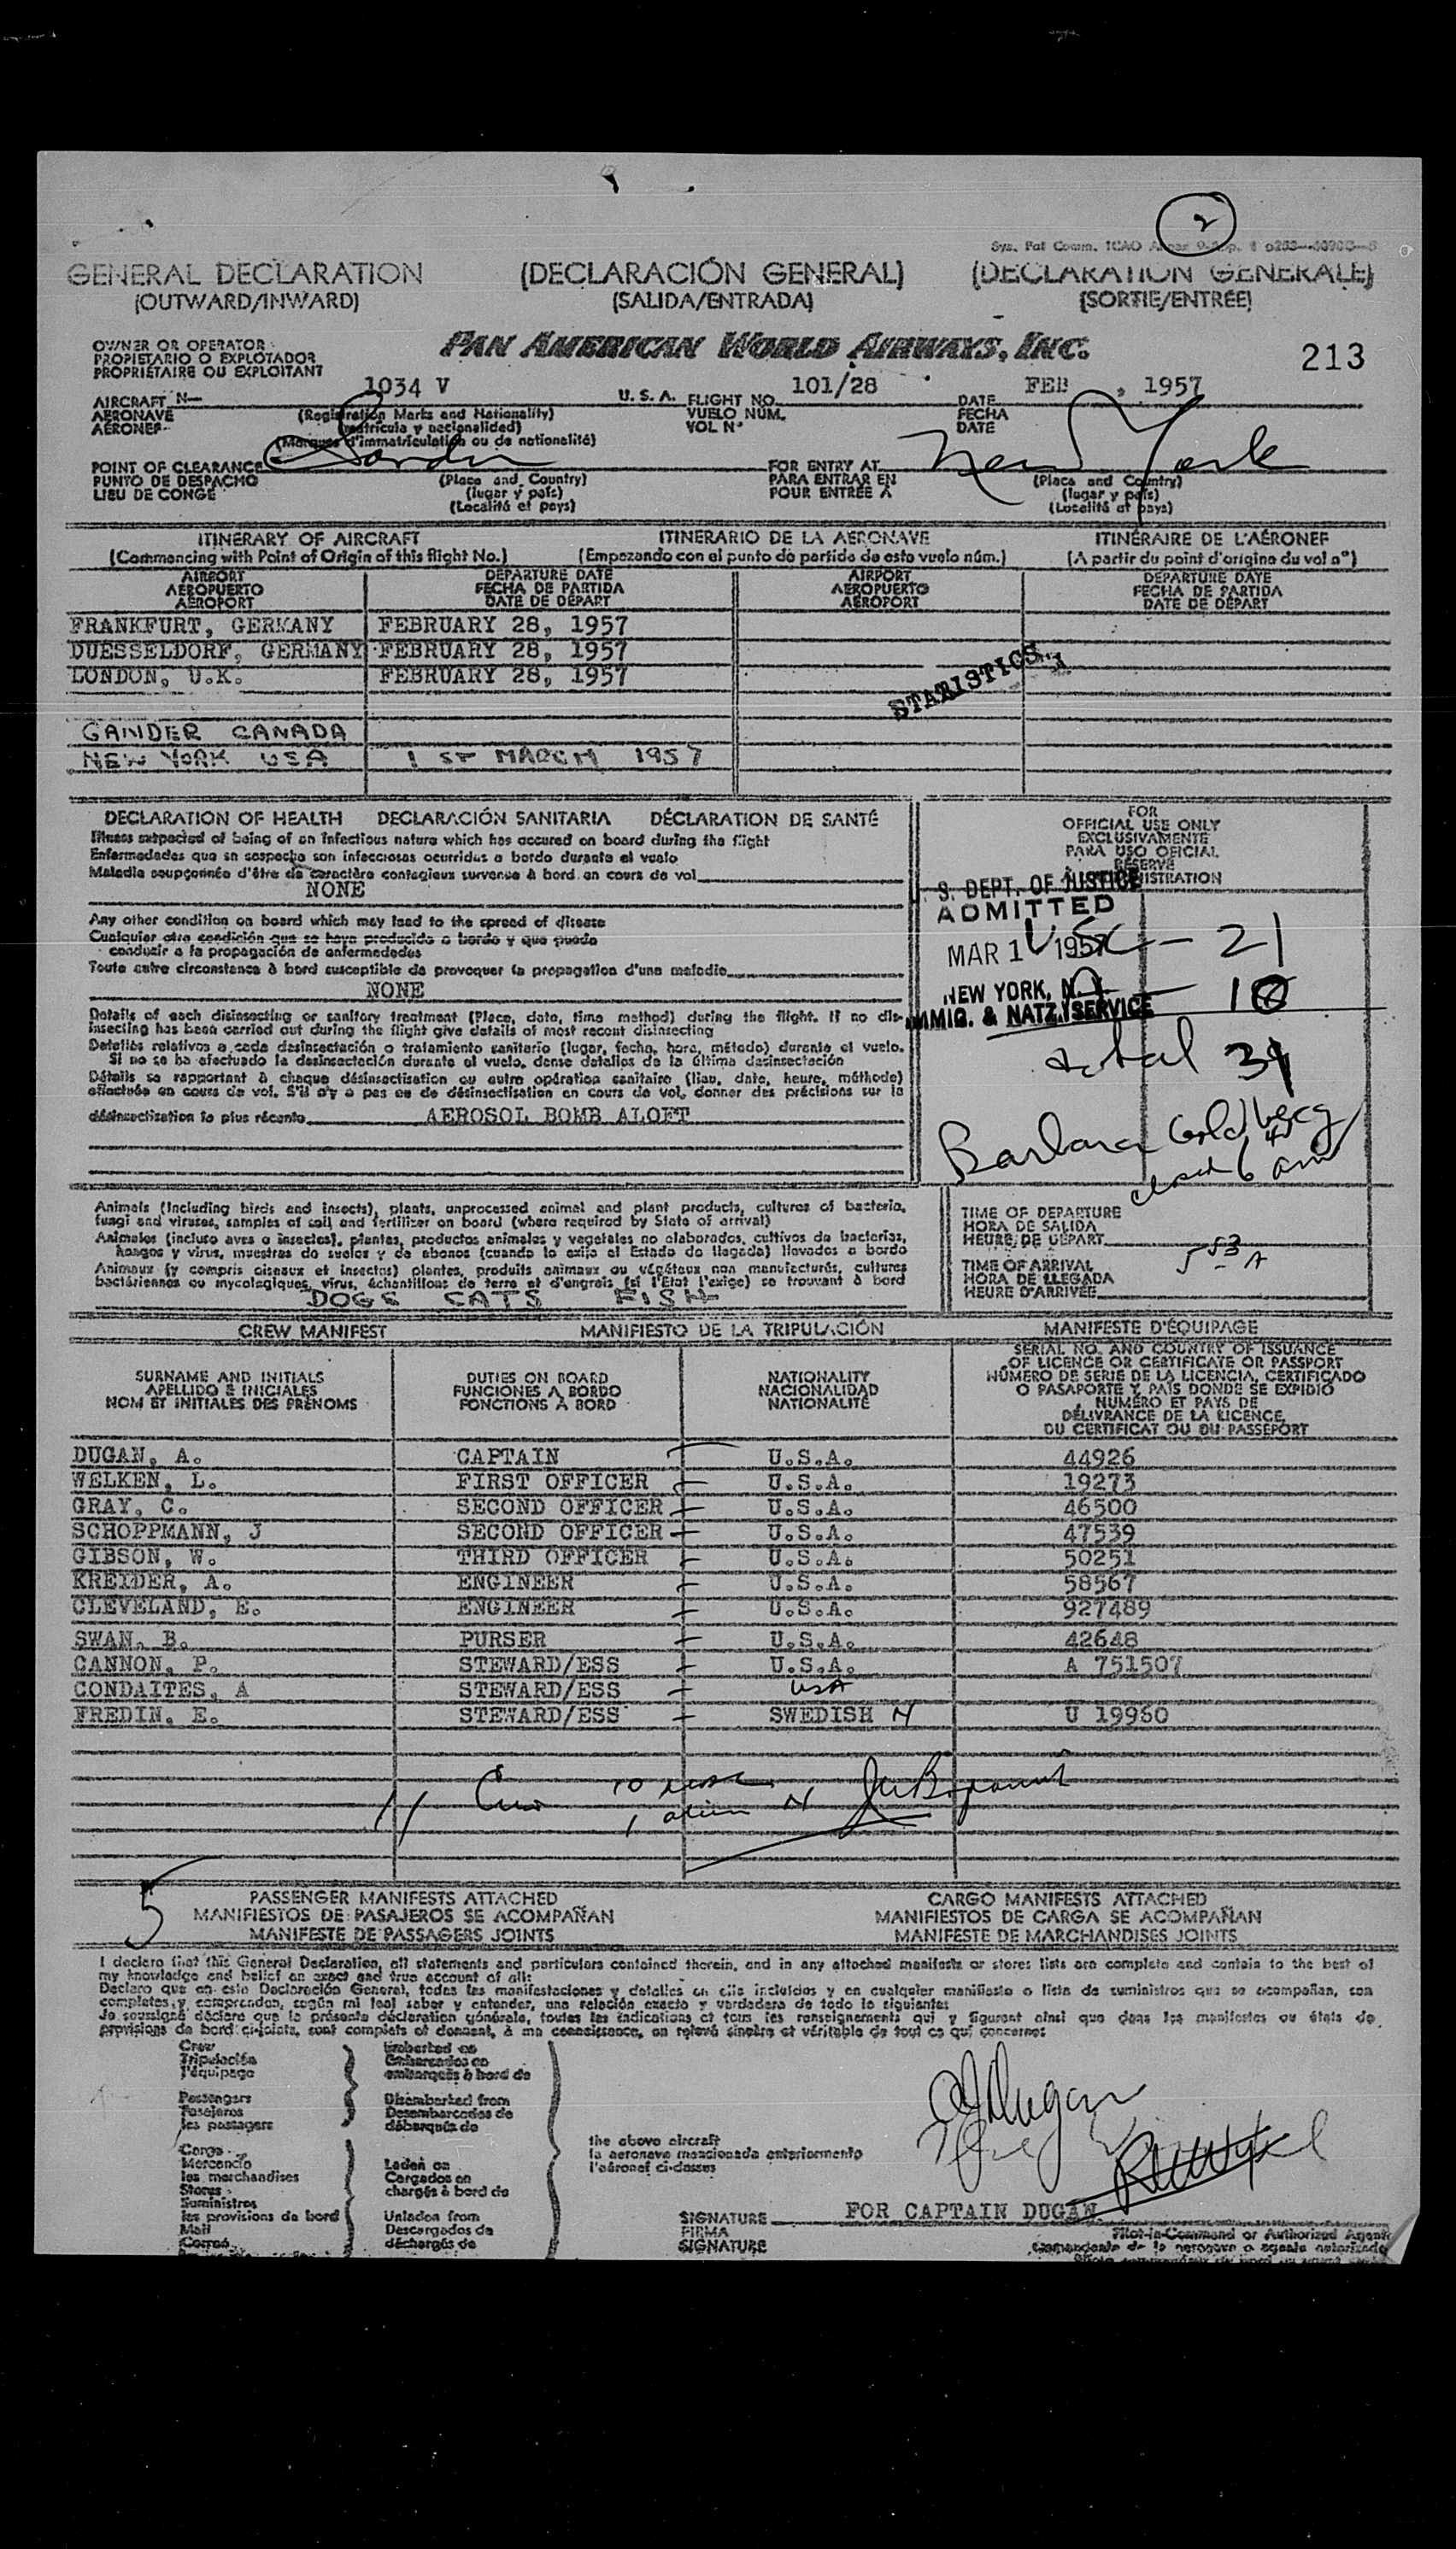 2
Sys. Pat Comm. ICAO
GENERAL DECLARATION (DECLARACIÓN GENERAL) (DECLARATION GENERALE)
(OUTWARD/INWARD) (SALIDA/ENTRADA) (SORTIE/ENTRÉE)
OWNER OR OPERATOR
PROPIETARIO O EXPLOTADOR
PROPRIÉTAIRE OU EXPLOITANT
PAN AMERICAN WORLD AIRWAYS, INC.
213
AIRCRAFT N— 1034 V U.S.A. FLIGHT NO. 101/28 DATE FEB , 1957
AERONAVE (Registration Marks and Nationality) VUELO NÚM. FECHA
AÉRONEF (matrícula y nacionalidad) VOL Nº DATE
(Marques d'immatriculation ou de nationalité)
POINT OF CLEARANCE London FOR ENTRY AT New York
PUNTO DE DESPACHO (Place and Country) PARA ENTRAR EN (Place and Country)
LIEU DE CONGÉ (lugar y país) POUR ENTRÉE À (lugar y país)
(Localité et pays) (Localité et pays)
ITINERARY OF AIRCRAFT ITINERARIO DE LA AERONAVE ITINÉRAIRE DE L'AÉRONEF
(Commencing with Point of Origin of this flight No.) (Empezando con el punto de partida de este vuelo núm.) (A partir du point d'origine du vol nº)
AIRPORT DEPARTURE DATE AIRPORT DEPARTURE DATE
AEROPUERTO FECHA DE PARTIDA AEROPUERTO FECHA DE PARTIDA
AÉROPORT DATE DE DÉPART AÉROPORT DATE DE DÉPART
FRANKFURT, GERMANY FEBRUARY 28, 1957
DUESSELDORF, GERMANY FEBRUARY 28, 1957
LONDON, U.K. FEBRUARY 28, 1957
STATISTICS
GANDER CANADA
NEW YORK USA 1 ST MARCH 1957
DECLARATION OF HEALTH DECLARACIÓN SANITARIA DÉCLARATION DE SANTÉ
Illness suspected of being of an infectious nature which has occured on board during the flight
Enfermedades que se sospecha son infecciosas ocurridas a bordo durante el vuelo
Maladie soupçonnée d'être de caractère contagieux survenue à bord en cours de vol
NONE
Any other condition on board which may lead to the spread of disease
Cualquier otra condición que se haya producido a bordo y que pueda
conducir a la propagación de enfermedades
Toute autre circonstance à bord susceptible de provoquer la propagation d'une maladie
NONE
Details of each disinsecting or sanitary treatment (Place, date, time method) during the flight. If no dis-
insecting has been carried out during the flight give details of most recent disinsecting
Detalles relativos a cada desinsectación o tratamiento sanitario (lugar, fecha, hora, método) durante el vuelo.
Si no se ha efectuado la desinsectación durante el vuelo, dense detalles de la última desinsectación
Détails se rapportant à chaque désinsectisation ou autre opération sanitaire (lieu, date, heure, méthode)
effectuée en cours de vol. S'il n'y a pas eu de désinsectisation en cours de vol, donner des précisions sur la
désinsectisation la plus récente AEROSOL BOMB ALOFT
FOR
OFFICIAL USE ONLY
EXCLUSIVAMENTE
PARA USO OFICIAL
RÉSERVÉ
ISTRATION
S. DEPT. OF JUSTICE
ADMITTED
MAR 1 1957 — 21
NEW YORK, N.Y.
— 10
IMMIG. & NATZ. SERVICE
total 31
Barbara Goldberg
closed 6 am
Animals (including birds and insects), plants, unprocessed animal and plant products, cultures of bacteria,
fungi and viruses, samples of soil and fertilizer on board (where required by State of arrival)
Animales (incluso aves o insectos), plantas, productos animales y vegetales no elaborados, cultivos de bacterias,
hongos y virus, muestras de suelos y de abonos (cuando lo exija el Estado de llegada) llevados a bordo
Animaux (y compris oiseaux et insectes) plantes, produits animaux ou végétaux non manufacturés, cultures
bactériennes ou mycologiques, virus, échantillons de terre et d'engrais (si l'Etat l'exige) se trouvant à bord
DOGS CATS FISH
TIME OF DEPARTURE
HORA DE SALIDA
HEURE DE DÉPART
TIME OF ARRIVAL 553 A
HORA DE LLEGADA
HEURE D'ARRIVÉE
CREW MANIFEST MANIFIESTO DE LA TRIPULACIÓN MANIFESTE D'ÉQUIPAGE
SURNAME AND INITIALS DUTIES ON BOARD NATIONALITY SERIAL NO. AND COUNTRY OF ISSUANCE
APELLIDO E INICIALES FUNCIONES A BORDO NACIONALIDAD OF LICENCE OR CERTIFICATE OR PASSPORT
NOM ET INITIALES DES PRÉNOMS FONCTIONS À BORD NATIONALITÉ NÚMERO DE SERIE DE LA LICENCIA, CERTIFICADO
O PASAPORTE Y PAÍS DONDE SE EXPIDIÓ
NUMÉRO ET PAYS DE
DÉLIVRANCE DE LA LICENCE,
DU CERTIFICAT OU DU PASSEPORT
DUGAN, A. CAPTAIN U.S.A. 44926
WELKEN, L. FIRST OFFICER U.S.A. 19273
GRAY, C. SECOND OFFICER U.S.A. 46500
SCHOPPMANN, J SECOND OFFICER U.S.A. 47539
GIBSON, W. THIRD OFFICER U.S.A. 50251
KREIDER, A. ENGINEER U.S.A. 58567
CLEVELAND, E. ENGINEER U.S.A. 927489
SWAN, B. PURSER U.S.A. 42648
CANNON, P. STEWARD/ESS U.S.A. A 751507
CONDAITES, A STEWARD/ESS USA
FREDIN, E. STEWARD/ESS SWEDISH N U 19960
11 Crew 10
1 alien N
5
PASSENGER MANIFESTS ATTACHED CARGO MANIFESTS ATTACHED
MANIFIESTOS DE PASAJEROS SE ACOMPAÑAN MANIFIESTOS DE CARGA SE ACOMPAÑAN
MANIFESTE DE PASSAGERS JOINTS MANIFESTE DE MARCHANDISES JOINTS
I declare that this General Declaration, all statements and particulars contained therein, and in any attached manifests or stores lists are complete and contain to the best of
my knowledge and belief an exact and true account of all:
Declaro que en esta Declaración General, todas las manifestaciones y detalles en ella incluidos y en cualquier manifiesto o lista de suministros que se acompañan, son
completos y comprenden, según mi leal saber y entender, una relación exacta y verdadera de todo lo siguiente:
Je soussigné déclare que la présente déclaration générale, toutes les indications et tous les renseignements qui y figurent ainsi que dans les manifestes ou états de
provisions de bord ci-joints, sont complets et donnent, à ma connaissance, un relevé sincère et véritable de tout ce qui concerne:
Crew Embarked on
Tripulación Embarcados en
l'équipage embarqués à bord de
Passengers Disembarked from
Pasajeros Desembarcados de
les passagers débarqués de
Cargo
Mercancía Laden on
les marchandises Cargados en
Stores chargés à bord de
Suministros
les provisions de bord Unladen from
Mail Descargados de
Correo déchargés de
the above aircraft
la aeronave mencionada anteriormente
l'aéronef ci-dessus
A J Dugan
SIGNATURE FOR CAPTAIN DUGAN
FIRMA Pilot-in-Command or Authorized Agent
SIGNATURE Comandante de la aeronave o agente autorizado